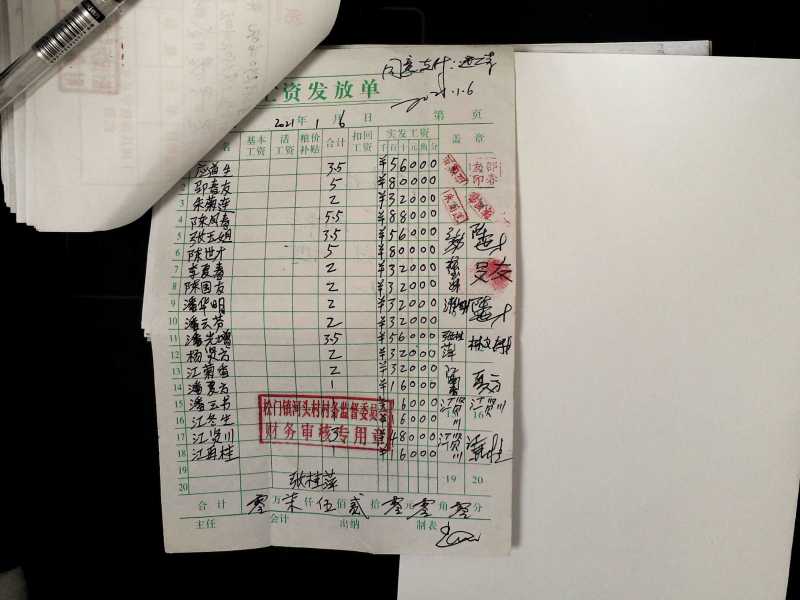 同意支付
2021.1.6
资发放单
2021年 1月 6日 第 页
名 基本工资 活工资 粮价补贴 合计 扣回工资 实发工资 盖章
千百十元角分
应道生 3.5 ¥56000
2 邵春友 5 ¥80000
3 朱菊莲 2 ¥32000
4 陈凤春 5.5 ¥88000
5 张玉姐 3.5 ¥56000
6 陈世才 5 ¥80000
7 李夏春 2 ¥32000
8 陈国友 2 ¥32000
9 潘华明 2 ¥32000
10 潘云芳 2 ¥32000
11 潘光增 3.5 ¥56000
12 杨贤方 2 ¥32000
13 江菊香 2 ¥32000
14 潘夏方 1 ¥16000
15 潘云书 16000
16 江冬生 16000
17 江贤川 3 ¥48000
18 江再桂 1 ¥16000
19
20 张桂萍 19 20
松门镇河头村村务监督委员
财务审核专用章
合计 零万柒仟伍佰贰拾零元零角零分
主任 会计 出纳 制表